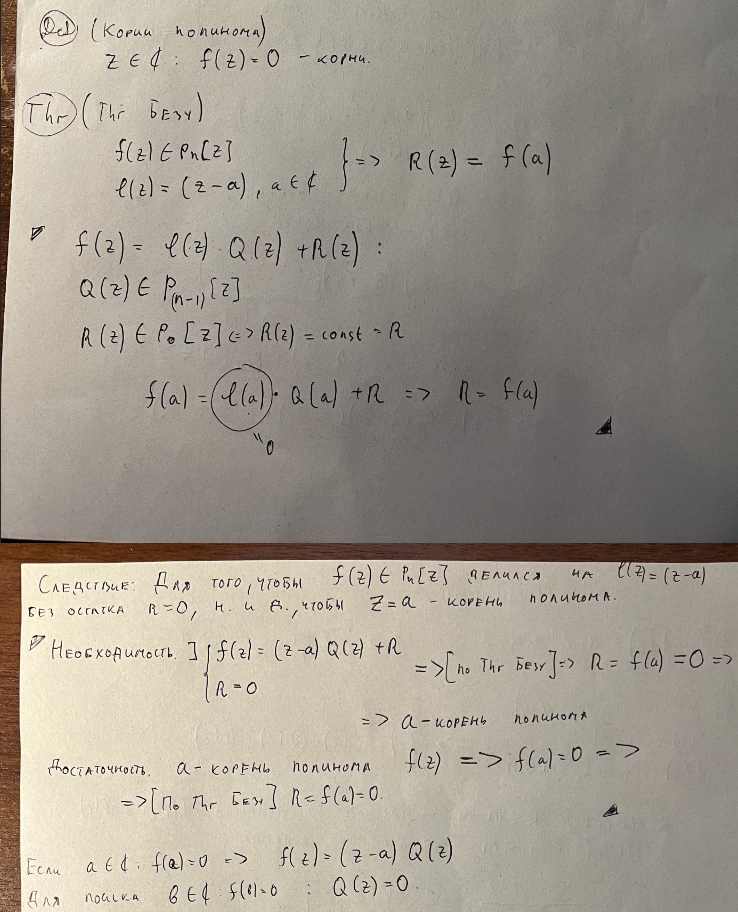 Def (Корни полинома)
z ∈ ₵ : f(z) = 0 – корни.
Thr (Thr Безу)
f(z) ∈ Pn[z]
l(z) = (z-a), a ∈ ₵ } => R(z) = f(a)
f(z) = l(z) · Q(z) + R(z) :
Q(z) ∈ P(n-1)[z]
R(z) ∈ P₀[z] <=> R(z) = const = R
f(a) = l(a) · Q(a) + R => R = f(a)
" 0
Следствие: Для того, чтобы f(z) ∈ Pn[z] делился на l(z) = (z-a)
без остатка R=0, н. и д., чтобы z=a – корень полинома.
Необходимость. ] { f(z) = (z-a) Q(z) + R
R = 0
=> [по Thr Безу] => R = f(a) = 0 =>
=> a – корень полинома
Достаточность. a – корень полинома f(z) => f(a) = 0 =>
=> [По Thr Безу] R = f(a) = 0.
Если a ∈ ₵ : f(a) = 0 => f(z) = (z-a) Q(z)
Для поиска b ∈ ₵ : f(b) = 0 : Q(z) = 0.